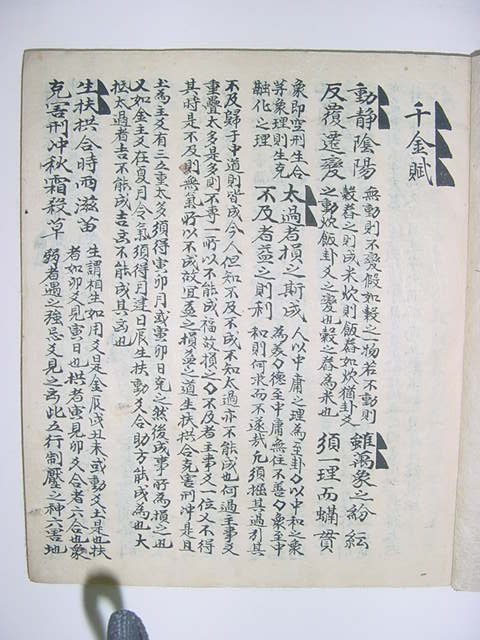 千金賦
動靜陰陽
反覆遷變
無動則不變假如穀之一物若不動則
穀舂之則成米炊則飯舂如炊猶卦爻
之動炊飯卦爻之變也穀之舂為米也
雖萬象之紛紜
須一理而貫
象即空刑生合
象理則生克
融化之理
太過者損之斯成
不及者益之則利
人以中庸之理為至卦以中和之象
為美德至中庸無往不善象至中
和則何求而不遂哉凡須掘其過引其
不及歸于中道則皆成今人但知不及不成不知太過亦不能成也何過主事爻
重疊太多是多則不專一所以不能成福故損之不及者主事爻一位又不得
其時是不及則無氣所以不成故宜益之損益之道生扶拱合克害刑冲是且
為主爻有二三重太多須得寅卯月或寅卯日克之然後成事所為損之也
又如金主爻在夏月令氣須得月建日辰生扶動爻合助方能成為也大
抵太過者吉不能成吉不能成其也
生扶拱合時雨滋苗
克害刑冲秋霜殺草
生謂相生如用爻是金辰戌丑未或動爻土是也扶
者如卯爻見寅日也拱者寅見卯爻合者六合也象
弱者遇之強忌爻見之為此五行制壓之神六害地